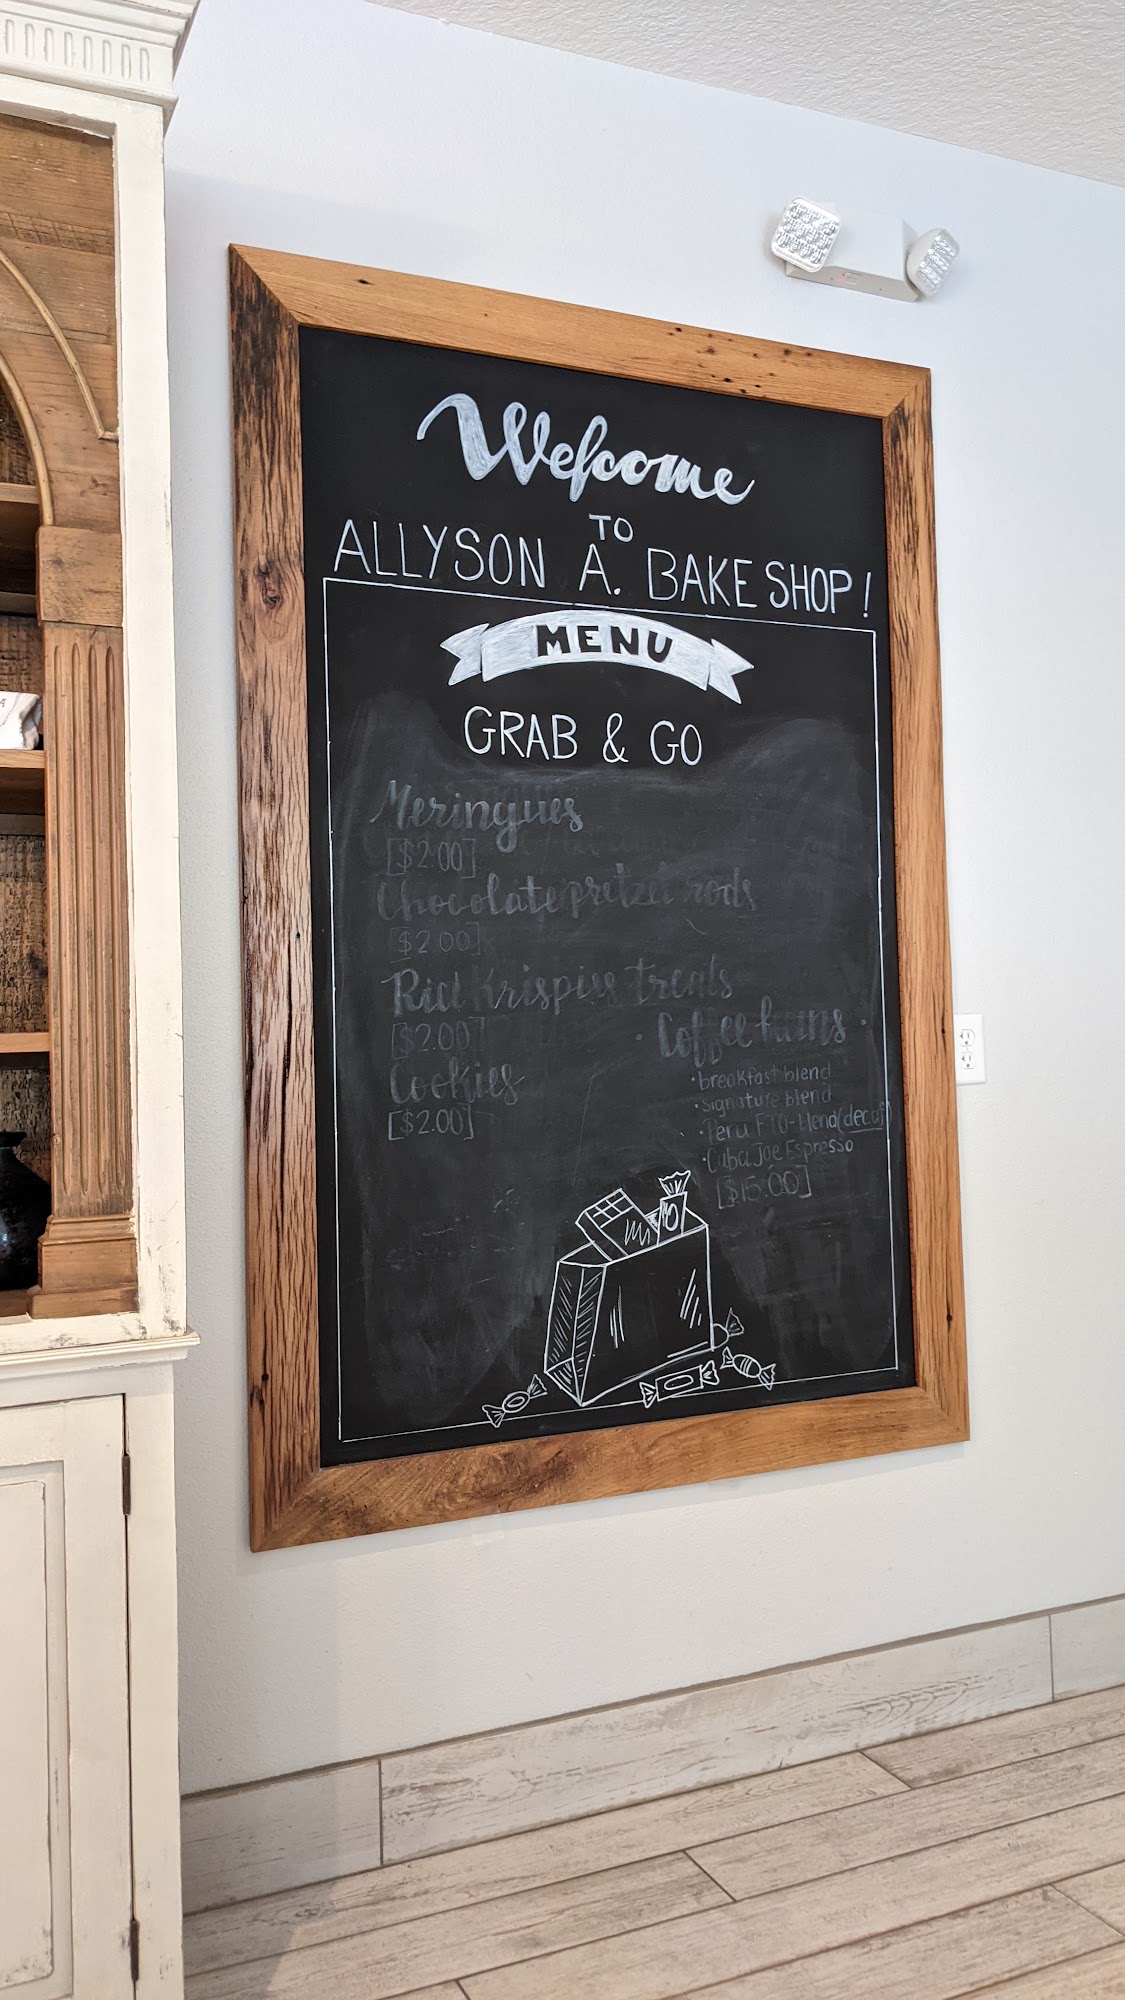 Welcome
TO
ALLYSON A. BAKE SHOP!
MENU
GRAB & GO
Meringues
[$2.00]
Chocolate pretzel rods
[$2.00]
Rice Krispies treats
[$2.00]
Cookies
[$2.00]
· Coffee beans ·
· breakfast blend
· signature blend
· Peru FTO-blend (decaf)
· Cuba Joe Espresso
[$15.00]